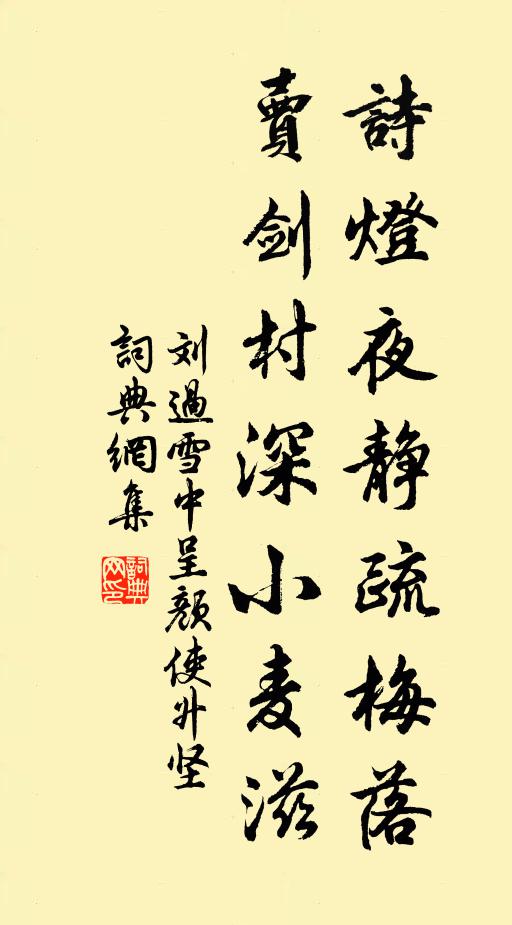 詩燈夜静疏梅落
賣剑村深小麦滋
刘過雪中呈顏使升坚
詞典網集
詞典网印